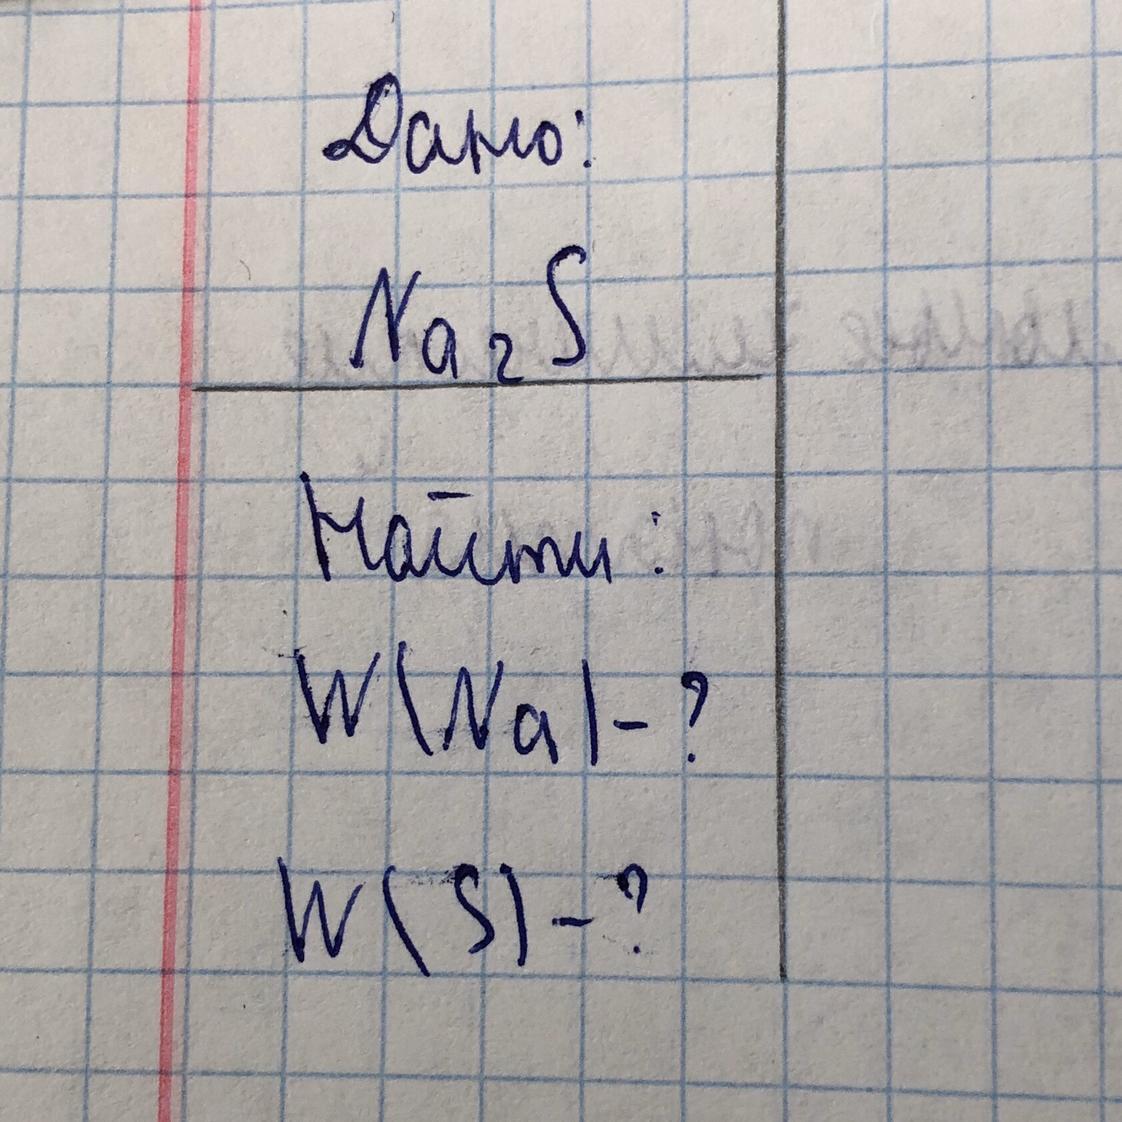 Дано:
Na₂S
Найти:
W(Na)-?
W(S)-?